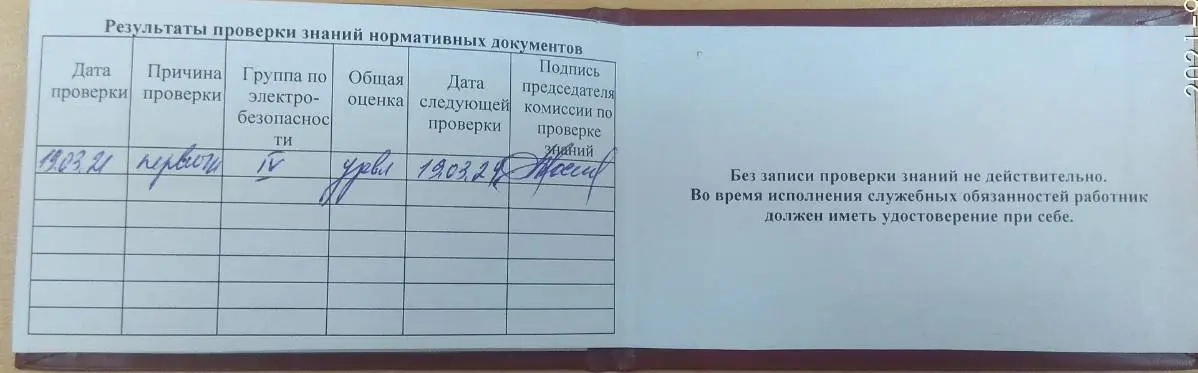 Результаты проверки знаний нормативных документов
Дата проверки
Причина проверки
Группа по электро-
безопаснос
ти
Общая оценка
Дата следующей проверки
Подпись председателя комиссии по проверке знаний
19.03.21 первичн IV удовл 19.03.24
Без записи проверки знаний не действительно.
Во время исполнения служебных обязанностей работник
должен иметь удостоверение при себе.